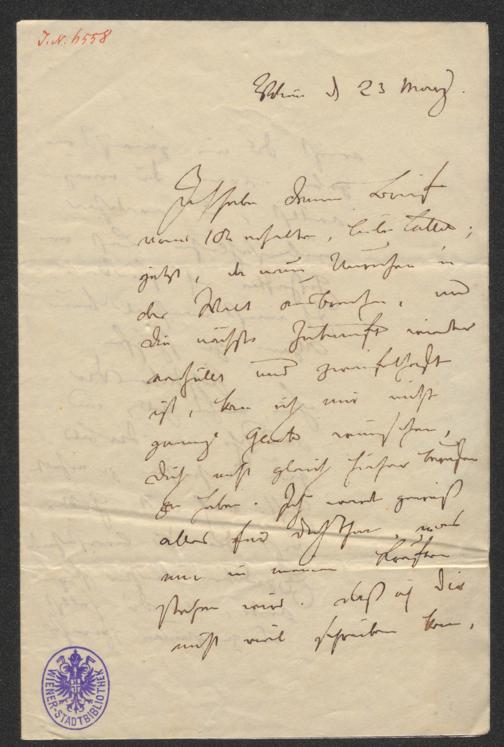 J.N. 6558
Wien d 23 März.
Ich habe deinen Brief
vom 18t erhalten, lieber
jetzt, da neue Unruhen in
der Welt ausbrechen, und
die nächste Zukunft wieder
und zweifelhaft
ist, kan ich mir nicht
ganz wünschen,
dich nicht gleich hieher berufen
zu haben. Ich werde gewiß
alles für dich thun, was
nur in meinen Kräften
stehen wird. daß ich dir
nicht viel schreiben kan,
WIENER-STADTBIBLIOTHEK